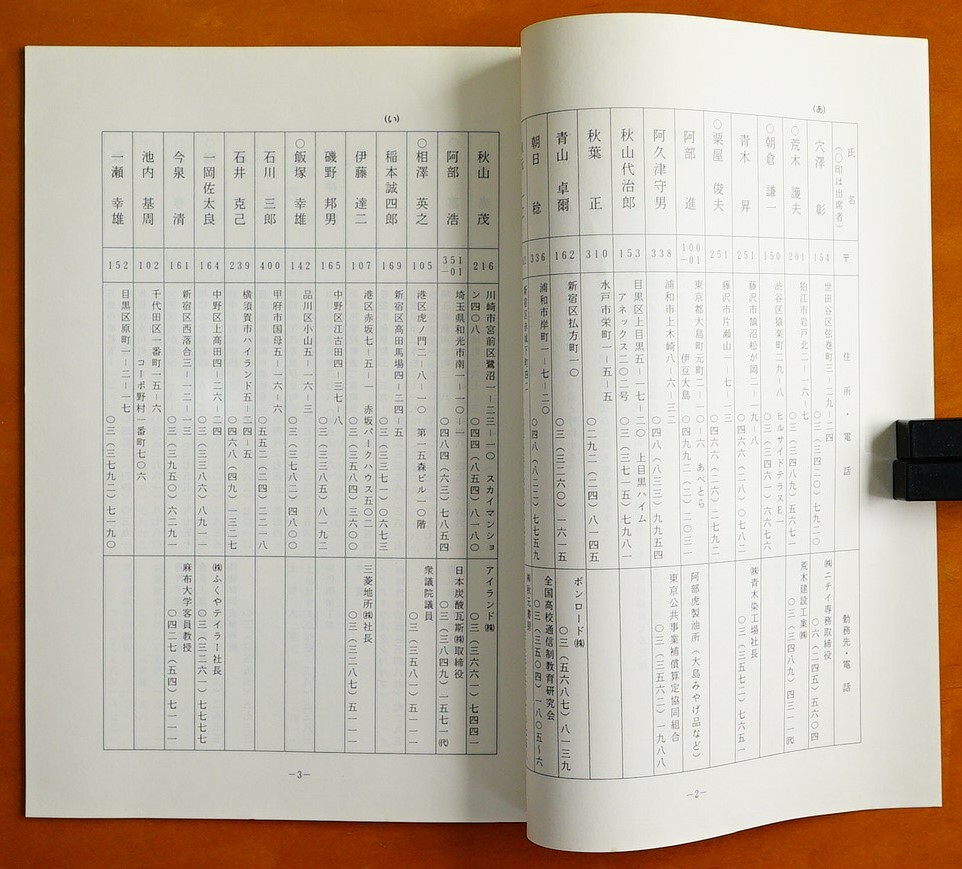 (あ)
氏名
(○印は出席者)
〒
住所・電話
勤務先・電話
穴澤 彰
154
世田谷区弦巻町三−二九−二四
〇三(三四二〇)七九二〇
㈱ニチイ専務取締役
〇六(二四五)五六〇四
○荒木 護夫
201
狛江市岩戸北二−一六−七
〇三(三四八九)五六七一
荒木建設工業㈱
〇三(三四八九)四三一一㈹
○朝倉 謙一
150
渋谷区猿楽町二九−八 ヒルサイドテラスE一
〇三(三四六一)六七七六
青木 昇
251
藤沢市鵠沼松が岡二−九−八
〇四六六(二八)〇七八二
㈱青木染工場社長
〇三(三五七二)七六五一
○粟屋 俊夫
251
藤沢市片瀬山一−七−三
〇四六六(二五)二七九二
阿部 進
100−01
東京都大島町元町二−一〇−六 あべとら
伊豆大島
〇四九九二(二)二〇三一
阿部虎製油所(大島みやげ品など)
阿久津守男
338
浦和市上木崎八−六−三二
〇四八(八三三)九九五四
東京公共事業補償算定協同組合
〇三(三五六二)一九八八
秋山代治郎
153
目黒区上目黒五−一七−二〇 上目黒ハイム
アネックス二〇二号
〇三(三七一五)七九八一
秋葉 正
310
水戸市栄町一−五−五
〇二九二(二四)八一四五
青山 卓爾
162
新宿区払方町一〇
〇三(三二六〇)一六一五
ボンロード㈱
〇三(五六八七)八一三九
朝日 稔
336
浦和市岸町一−七−二〇
〇四八(八二二)七七五九
全国高校通信制教育研究会
〇三(三五〇四)一八〇五〜六
−2−
秋山 茂
216
川崎市宮前区鷺沼一−二三−一〇 スカイマンショ
ン四〇八
〇四四(八五四)八一八〇
アイランド㈱
〇三(三六六一)七四四一
阿部 浩
351−01
埼玉県和光市南一−一〇−一
〇四八四(六三)七八五四
日本炭酸瓦斯㈱取締役
〇三(三八四九)一五七一㈹
(い)
○相澤 英之
105
港区虎ノ門二−八−一〇 第一五森ビル一〇階
衆議院議員
〇三(三五八一)五一一一
稲本誠四郎
169
新宿区高田馬場四−二四−五
〇三(三三七一)〇六七三
伊藤 達二
107
港区赤坂七−五−一 赤坂パークハウス五〇二
〇三(三五八四)三六〇〇
三菱地所㈱社長
〇三(三二八七)五一一一
磯野 邦男
165
中野区江古田四−三七−八
〇三(三三八五)八一九二
○飯塚 幸雄
142
品川区小山五−一六−三
〇三(三七八二)四八〇〇
石川 三郎
400
甲府市国母五−一六−六
〇五五二(二四)二二一八
石井 克己
239
横須賀市ハイランド五−二四−五
〇四六八(四九)一三二七
一岡佐太良
164
中野区上高田四−二六−二四
〇三(三三八六)八九一一
㈱ふくやテイラー社長
〇三(三二六一)七七七七
今泉 清
161
新宿区西落合三−一二−一三
〇三(三九五〇)六二九一
麻布大学客員教授
〇四二七(五四)七一一一
池内 基周
102
千代田区一番町一五−六
コーポ野村一番町七〇六
一瀬 幸雄
152
目黒区原町一−二−一七
〇三(三七九二)七一九〇
−3−